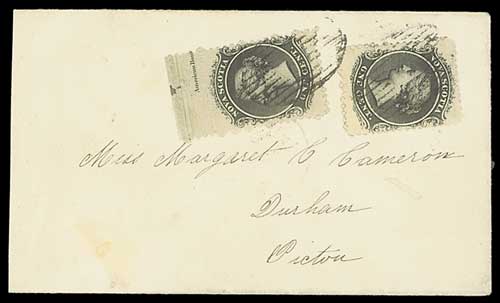 NOVA SCOTIA
ONE CENT
American Bank
NOVA SCOTIA
ONE CENT
Miss Margaret C Cameron
Durham
Pictou